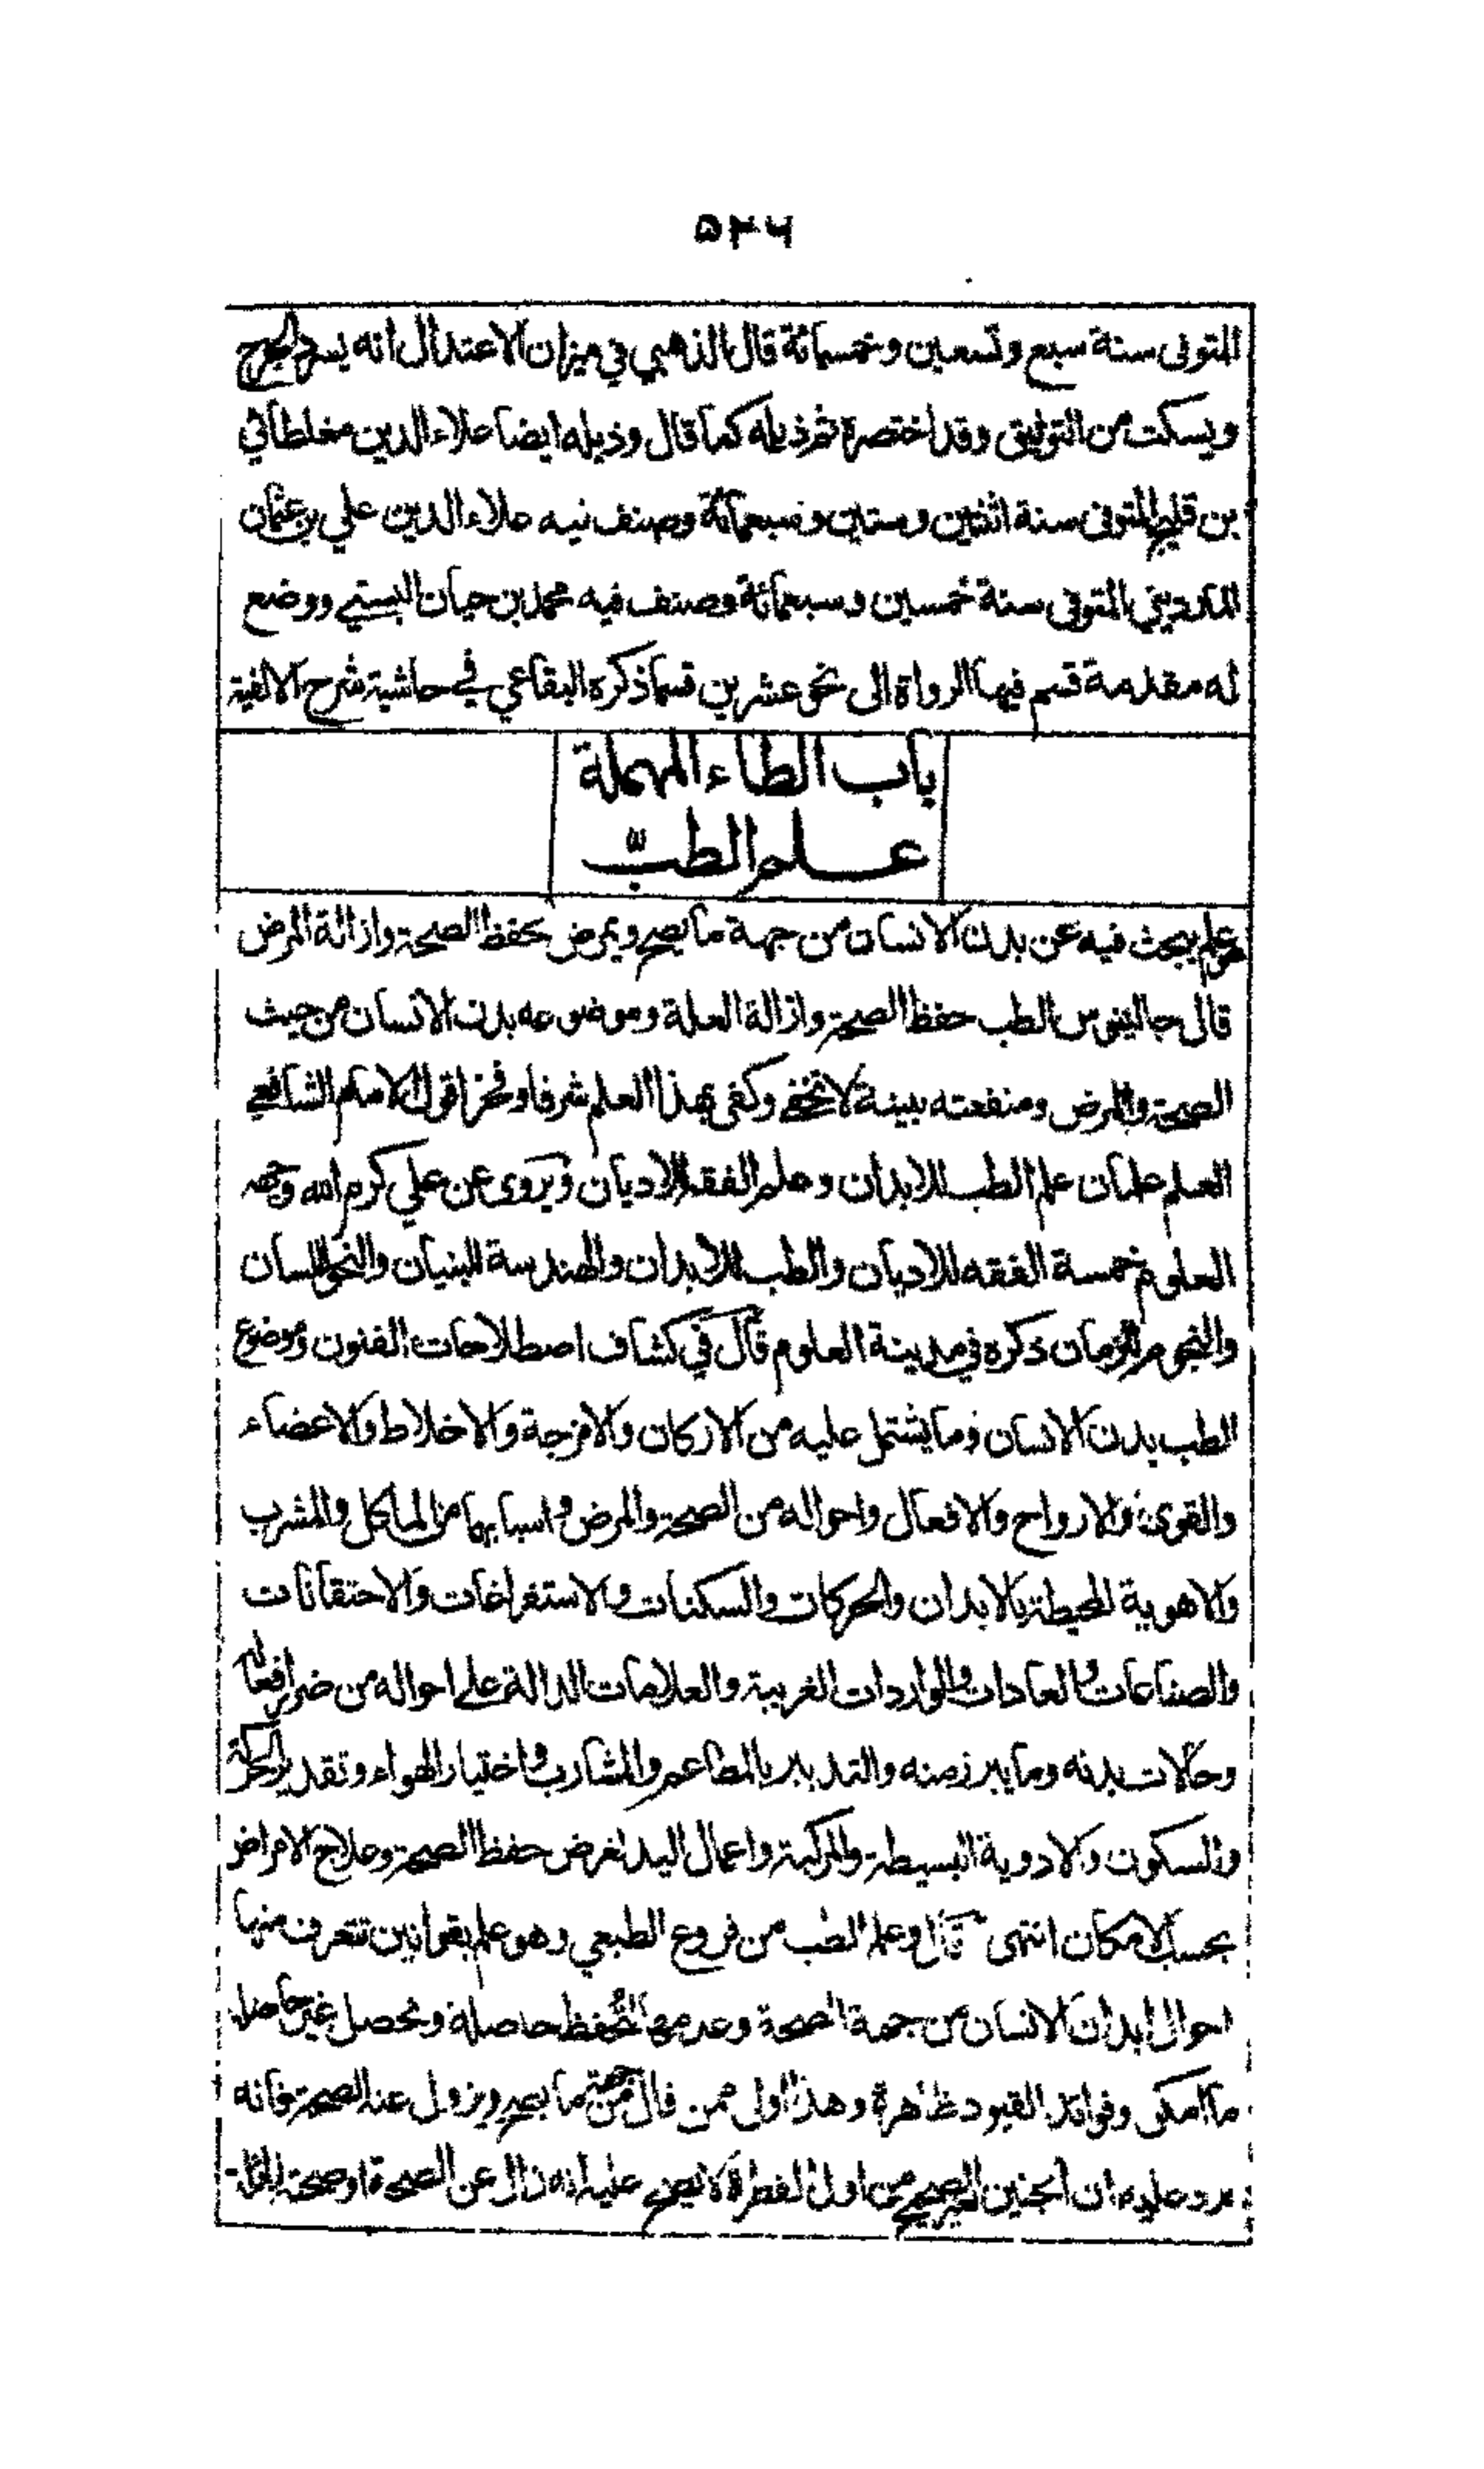 ۵۲۶
المتوفى سنة سبع وتسعين وخمسمائة قال الذهبي في ميزان الاعتدال انه يسرد الجرح
ويسكت من التوثيق وقد اختصره ثم ذيله كما قال وذيله ايضا علاء الدين مغلطائي
بن قليج المتوفى سنة اثنتين وستين وسبعمائة وصنف فيه علاء الدين علي بن عثمان
المارديني المتوفى سنة خمسين وسبعمائة وصنف فيه محمد بن حبان البستي ووضع
له مقدمة قسم فيها الرواة الى نحو عشرين قسما ذكره البقاعي في حاشية شرح الالفية
باب الطاء المهملة
علم الطب
هو علم يبحث فيه عن بدن الانسان من جهة ما يصح ويمرض بحفظ الصحة وازالة المرض
قال جالينوس الطب حفظ الصحة وازالة العلة وموضوعه بدن الانسان من حيث
الصحة والمرض ومنفعته بينة لا تخفى وكفى بهذا العلم شرفا وفخرا قول الامام الشافعي
العلم علمان علم الطب للابدان وعلم الفقه للاديان ويروى عن علي كرم الله وجهه
العلوم خمسة الفقه للاديان والطب للابدان والهندسة للبنيان والنحو للسان
والنجوم للزمان ذكره في مدينة العلوم قال في كشاف اصطلاحات الفنون وموضوع
الطب بدن الانسان وما يشتمل عليه من الاركان والامزجة والاخلاط والاعضاء
والقوى والارواح والافعال واحواله من الصحة والمرض واسبابهما من الماكل والمشرب
والاهوية المحيطة بالابدان والحركات والسكنات والاستفراغات والاحتقانات
والصناعات والعادات والواردات الغريبة والعلامات الدالة على احواله من ضرر افعاله
وحالات بدنه وما يبرز منه والتدبير بالمطاعم والمشارب واختيار الهواء وتقدير الحركة
والسكون والادوية البسيطة والمركبة واعمال اليد لغرض حفظ الصحة وعلاج الامراض
بحسب الامكان انتهى قال وعلم الطب من فروع الطبعي وهو علم بقوانين تتعرف منها
احوال ابدان الانسان من جهة الصحة وعدمها لتحفظ حاصلة وتحصل غير حاصلة
ما امكن وفوائد القيود ظاهرة وهذا اولى ممن قال من جهة ما يصح ويزول عنه الصحة فانه
يرد عليه ان الجنين الغير الصحيح من اول الفطرة لا يصح عليه انه زال عن الصحة او صحته زائلة